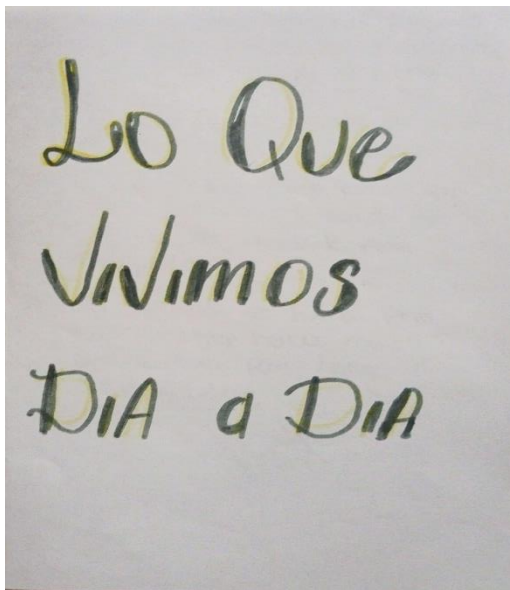 Lo Que
VIVIMOS
DIA a DIA